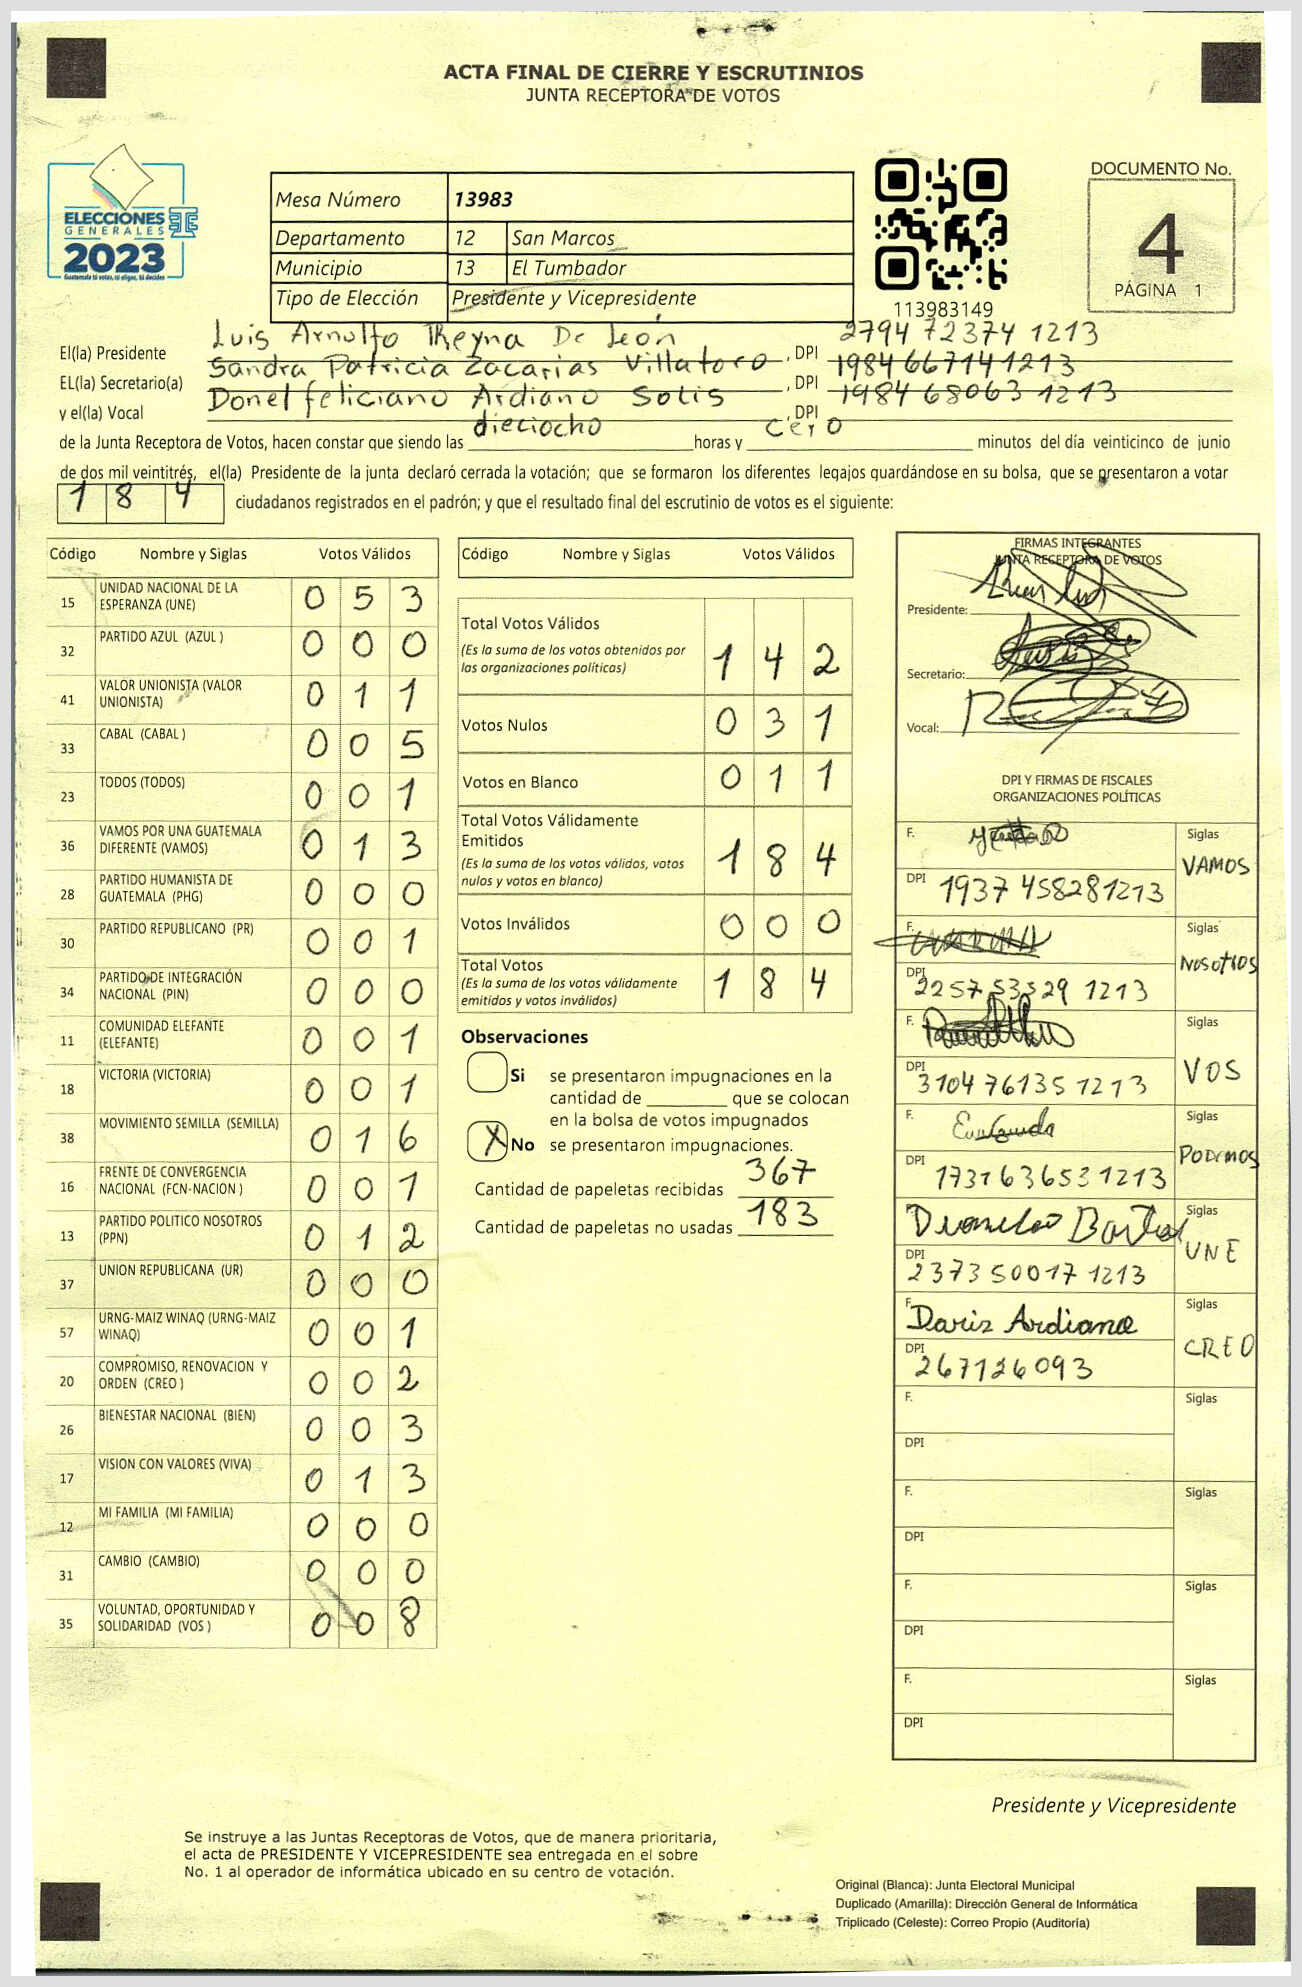 ACTA FINAL DE CIERRE Y ESCRUTINIOS
JUNTA RECEPTORA DE VOTOS
ELECCIONES
GENERALES
2023
Guatemala tú votas, tú eliges, tú decides
Mesa Número 13983
Departamento 12 San Marcos
Municipio 13 El Tumbador
Tipo de Elección Presidente y Vicepresidente
113983149
DOCUMENTO No.
4
PÁGINA 1
El(la) Presidente Luis Arnolfo Reyna De León , DPI 2794 72374 1213
EL(la) Secretario(a) Sandra Patricia Zacarias Villatoro , DPI 1984 66714 1213
y el(la) Vocal Donel feliciano Ardiano Solis , DPI 1984 68063 1213
de la Junta Receptora de Votos, hacen constar que siendo las dieciocho horas y cero minutos del día veinticinco de junio
de dos mil veintitrés, el(la) Presidente de la junta declaró cerrada la votación; que se formaron los diferentes legajos quardándose en su bolsa, que se presentaron a votar
1 8 4 ciudadanos registrados en el padrón; y que el resultado final del escrutinio de votos es el siguiente:
Código Nombre y Siglas Votos Válidos
15 UNIDAD NACIONAL DE LA
ESPERANZA (UNE) 0 5 3
32 PARTIDO AZUL (AZUL ) 0 0 0
41 VALOR UNIONISTA (VALOR
UNIONISTA) 0 1 1
33 CABAL (CABAL ) 0 0 5
23 TODOS (TODOS) 0 0 1
36 VAMOS POR UNA GUATEMALA
DIFERENTE (VAMOS) 0 1 3
28 PARTIDO HUMANISTA DE
GUATEMALA (PHG) 0 0 0
30 PARTIDO REPUBLICANO (PR) 0 0 1
34 PARTIDO DE INTEGRACIÓN
NACIONAL (PIN) 0 0 0
11 COMUNIDAD ELEFANTE
(ELEFANTE) 0 0 1
18 VICTORIA (VICTORIA) 0 0 1
38 MOVIMIENTO SEMILLA (SEMILLA) 0 1 6
16 FRENTE DE CONVERGENCIA
NACIONAL (FCN-NACION ) 0 0 1
13 PARTIDO POLITICO NOSOTROS
(PPN) 0 1 2
37 UNION REPUBLICANA (UR) 0 0 0
57 URNG-MAIZ WINAQ (URNG-MAIZ
WINAQ) 0 0 1
20 COMPROMISO, RENOVACION Y
ORDEN (CREO ) 0 0 2
26 BIENESTAR NACIONAL (BIEN) 0 0 3
17 VISION CON VALORES (VIVA) 0 1 3
12 MI FAMILIA (MI FAMILIA) 0 0 0
31 CAMBIO (CAMBIO) 0 0 0
35 VOLUNTAD, OPORTUNIDAD Y
SOLIDARIDAD (VOS ) 0 0 8
Código Nombre y Siglas Votos Válidos
Total Votos Válidos
(Es la suma de los votos obtenidos por
las organizaciones políticas) 1 4 2
Votos Nulos 0 3 1
Votos en Blanco 0 1 1
Total Votos Válidamente
Emitidos
(Es la suma de los votos válidos, votos
nulos y votos en blanco) 1 8 4
Votos Inválidos 0 0 0
Total Votos
(Es la suma de los votos válidamente
emitidos y votos inválidos) 1 8 4
Observaciones
Si se presentaron impugnaciones en la
cantidad de ________ que se colocan
en la bolsa de votos impugnados
X No se presentaron impugnaciones.
Cantidad de papeletas recibidas 367
Cantidad de papeletas no usadas 183
FIRMAS INTEGRANTES
JUNTA RECEPTORA DE VOTOS
Presidente:
Secretario:
Vocal:
DPI Y FIRMAS DE FISCALES
ORGANIZACIONES POLÍTICAS
F. Siglas
DPI 1937 458281213 VAMOS
F. Siglas
DPI 2257 53329 1213 NOSOTROS
F. Siglas
DPI 3104 76135 1213 VOS
F. Siglas
DPI 1731 63653 1213 PODEMOS
F. Siglas
DPI 2373 50017 1213 UNE
F. Dariz Ardiano Siglas
DPI 267126093 CREO
F. Siglas
DPI
F. Siglas
DPI
F. Siglas
DPI
F. Siglas
DPI
Presidente y Vicepresidente
Se instruye a las Juntas Receptoras de Votos, que de manera prioritaria,
el acta de PRESIDENTE Y VICEPRESIDENTE sea entregada en el sobre
No. 1 al operador de informática ubicado en su centro de votación.
Original (Blanca): Junta Electoral Municipal
Duplicado (Amarilla): Dirección General de Informática
Triplicado (Celeste): Correo Propio (Auditoría)